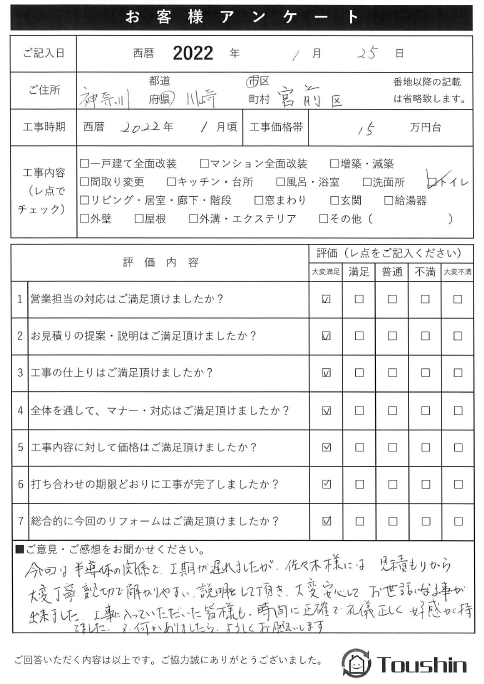 お客様アンケート
ご記入日 西暦 2022 年 1 月 25 日
ご住所 神奈川 都道府県 川崎 市区町村 宮前区 番地以降の記載は省略致します。
工事時期 西暦 2022年 1月頃 工事価格帯 15 万円台
工事内容（レ点でチェック）
□一戸建て全面改装 □マンション全面改装 □増築・減築
□間取り変更 □キッチン・台所 □風呂・浴室 □洗面所 ☑トイレ
□リビング・居室・廊下・階段 □窓まわり □玄関 □給湯器
□外壁 □屋根 □外溝・エクステリア □その他（ ）
評価内容 評価（レ点をご記入ください）
大変満足 満足 普通 不満 大変不満
1 営業担当の対応はご満足頂けましたか？ ☑ □ □ □ □
2 お見積りの提案・説明はご満足頂けましたか？ ☑ □ □ □ □
3 工事の仕上りはご満足頂けましたか？ ☑ □ □ □ □
4 全体を通して、マナー・対応はご満足頂けましたか？ ☑ □ □ □ □
5 工事内容に対して価格はご満足頂けましたか？ ☑ □ □ □ □
6 打ち合わせの期限どおりに工事が完了しましたか？ ☑ □ □ □ □
7 総合的に今回のリフォームはご満足頂けましたか？ ☑ □ □ □ □
■ご意見・ご感想をお聞かせください。
今回は半導体の関係で、工期が遅れましたが、佐々木様には 見積もりから
大変丁寧 親切で解かりやすい 説明をして頂き、大変安心して お世話になる事が
出来ました。工事に入っていただいた皆様も、時間に正確で礼儀正しく 好感が持
てました。又、何かありましたら、よろしくお願いします
ご回答いただく内容は以上です。ご協力誠にありがとうございました。
Toushin